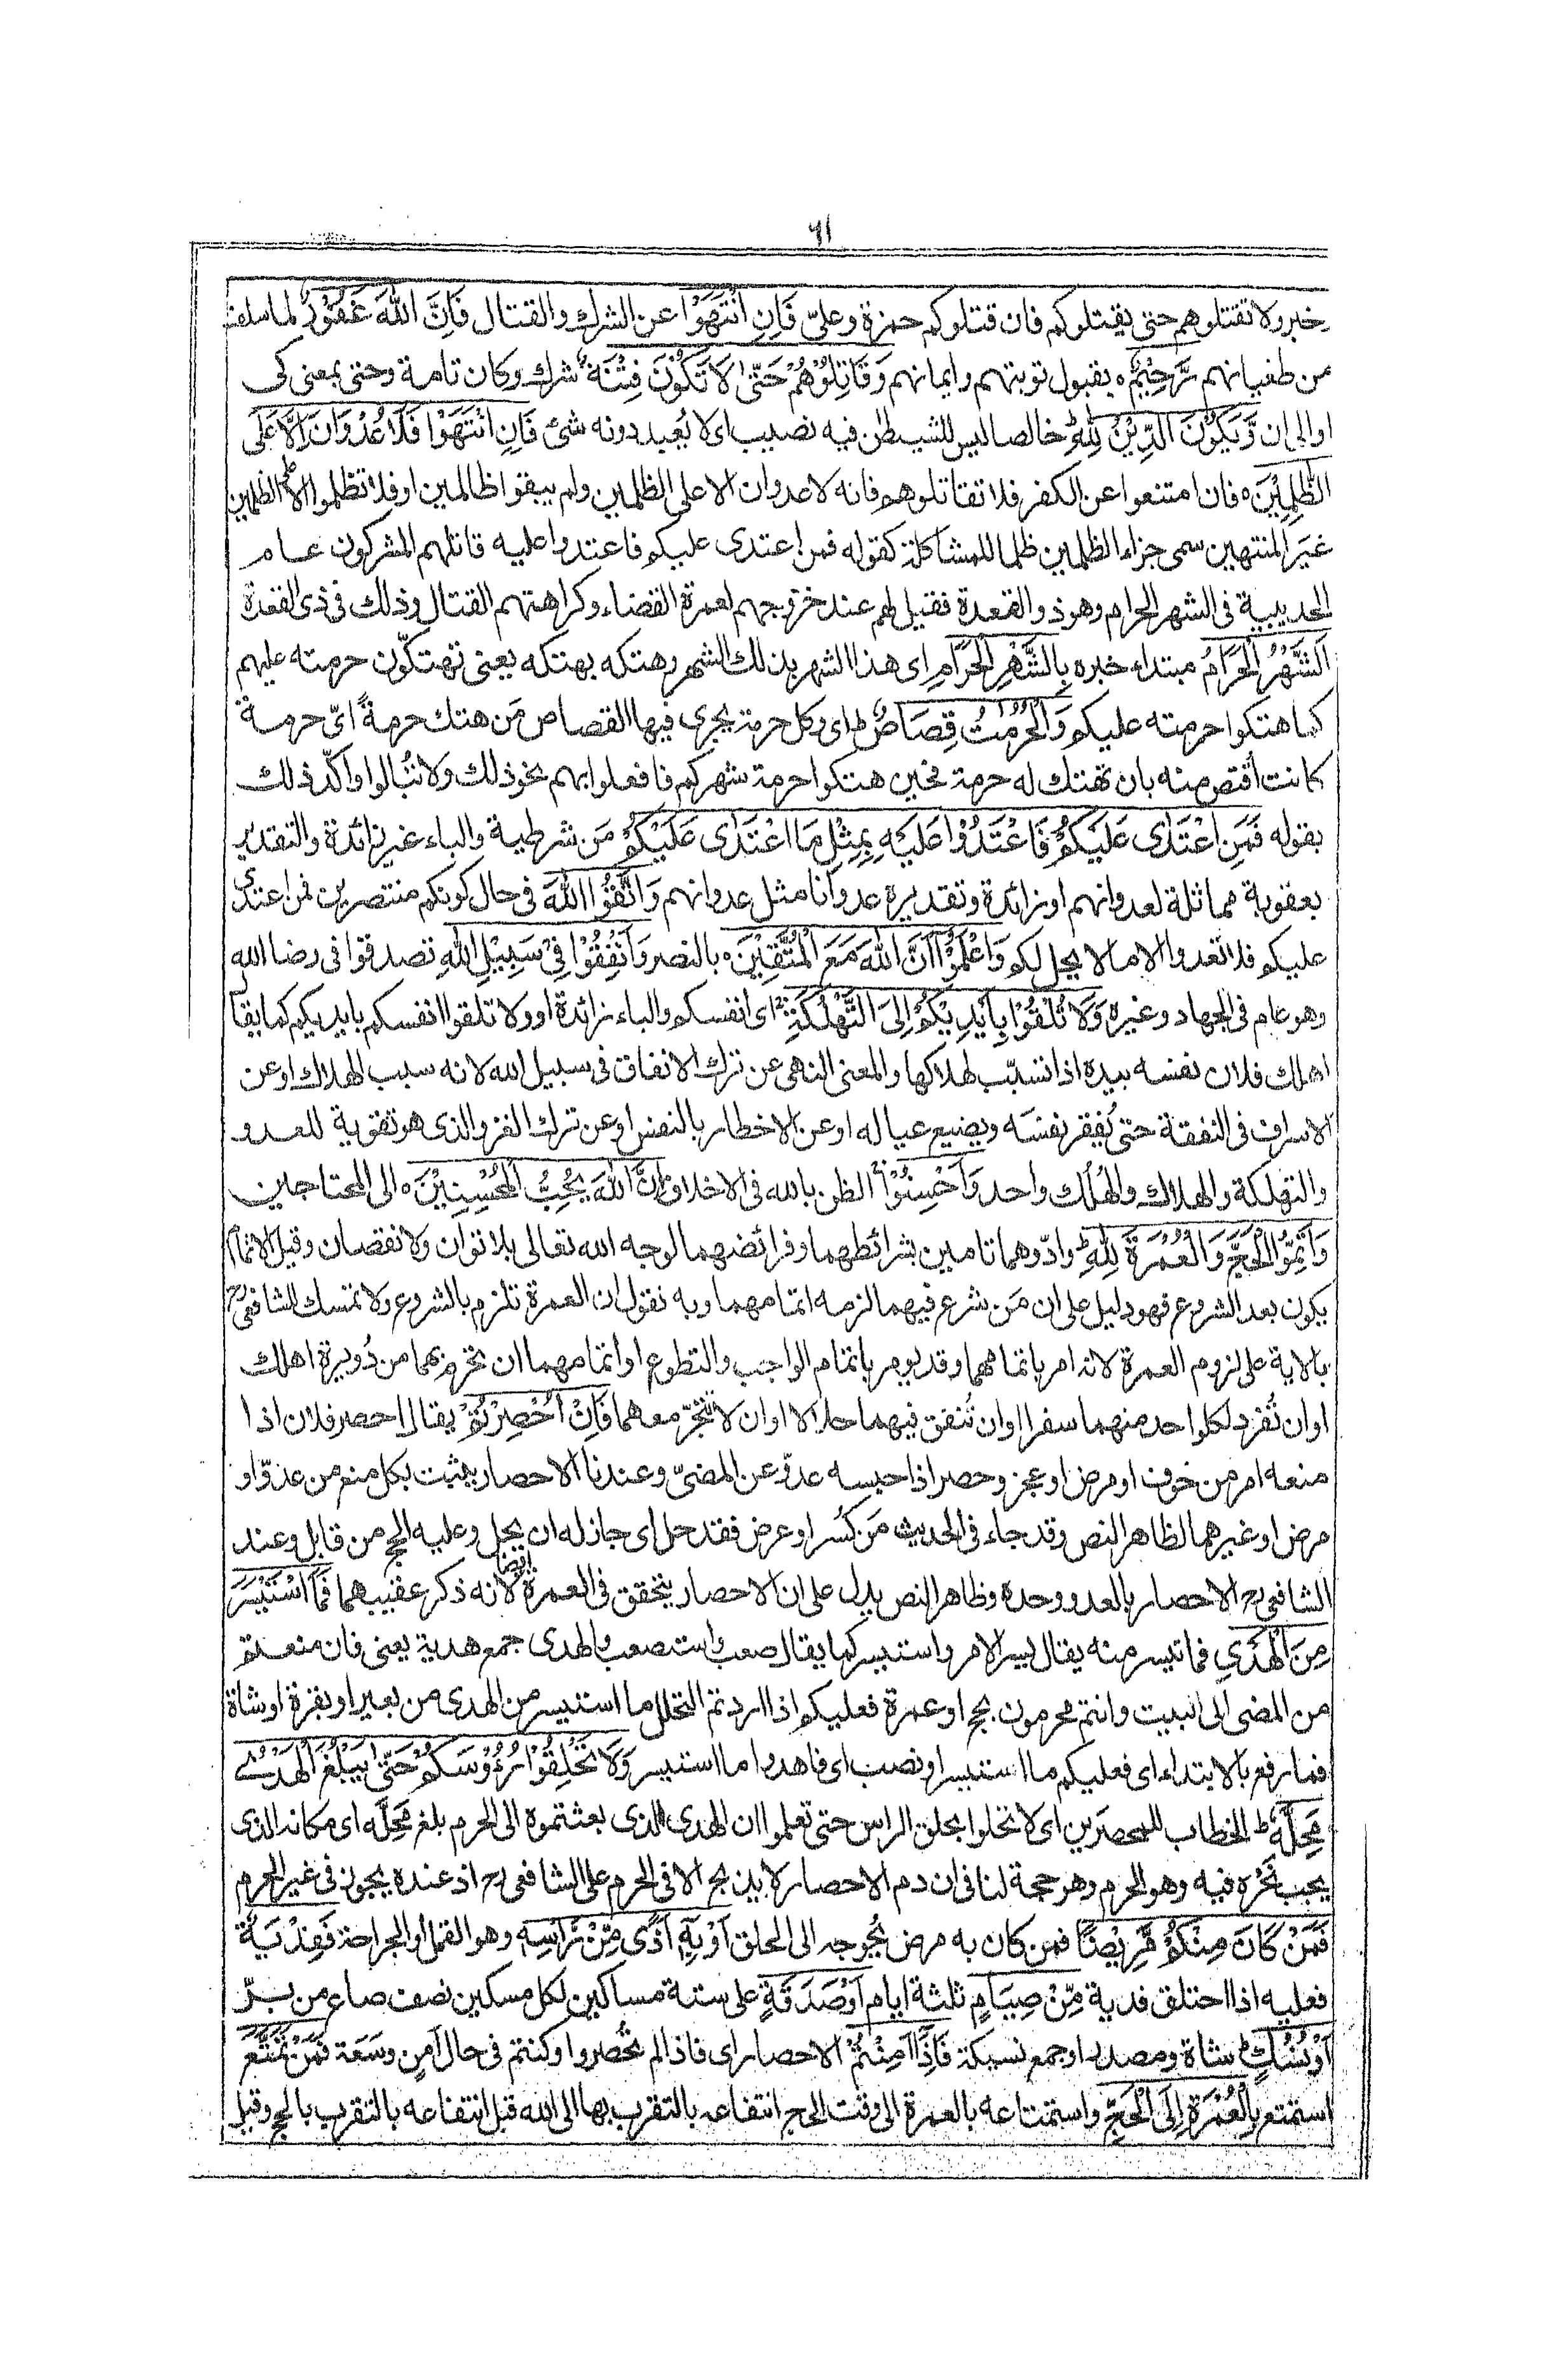 ٦١
خبر ولا تقتلوهم حتى يقتلوكم فان قتلوكم حمزة وعلىّ فَاِنِ انْتَهَوْا عن الشرك والقتال فَاِنَّ اللّٰهَ غَفُوْرٌ لما سلف
من طغيانهم رَّحِيْمٌ ه بقبول توبتهم وايمانهم وَقَاتِلُوْهُمْ حَتّٰى لَا تَكُوْنَ فِتْنَةٌ شرك وكان تامة وحتى بمعنى كى
او الى ان وَّيَكُوْنَ الدِّيْنُ لِلّٰهِ ط خالصا ليس للشيطٰن فيه نصيب اى لا يُعبد دونه شئ فَاِنِ انْتَهَوْا فَلَا عُدْوَانَ اِلَّا عَلَى
الظّٰلِمِيْنَ ه فان امتنعوا عن الكفر فلا تقاتلوهم فانه لا عدوان الا على الظلمين ولم يبقوا ظالمين او فلا تظلموا الا الظلمين
غيرَ المنتهين سمى جزاء الظلمين ظلما للمشاكلة كقوله فمن اعتدى عليكم فاعتدوا عليه قاتلهم المشركون عام
الحديبية فى الشهر الحرام وهو ذو القعدة فقيل لهم عند خروجهم لعمرة القضاء وكراهتهم القتال وذلك فى ذى القعدة
اَلشَّهْرُ الْحَرَامُ مبتداء خبره بِالشَّهْرِ الْحَرَامِ اى هذا الشهر بذلك الشهر وهتكه بهتكه يعنى تهتكون حرمته عليهم
كما هتكوا حرمته عليكم وَالْحُرُمٰتُ قِصَاصٌ ط اى وكل حرمة يجرى فيها القصاص مَن هتك حرمةً اىّ حرمة
كانت اُقتص منه بان تهتك له حرمة فحين هتكوا حرمة شهركم فافعلوا بهم نحو ذلك ولا تُبالوا واكّد ذلك
بقوله فَمَنِ اعْتَدٰى عَلَيْكُمْ فَاعْتَدُوْا عَلَيْهِ بِمِثْلِ مَا اعْتَدٰى عَلَيْكُمْ مَن شرطية والباء غير زائدة والتقدير
بعقوبة مماثلة لعدوانهم او زائدة وتقديره عدوانا مثل عدوانهم وَاتَّقُوا اللّٰهَ فى حال كونكم منتصرين ممن اعتدى
عليكم فلا تعدوا الا ما لا يحل لكم وَاعْلَمُوْٓا اَنَّ اللّٰهَ مَعَ الْمُتَّقِيْنَ ه بالنصر وَاَنْفِقُوْا فِىْ سَبِيْلِ اللّٰهِ تصدقوا فى رضا الله
وهو عام فى الجهاد وغيره وَلَا تُلْقُوْا بِاَيْدِيْكُمْ اِلَى التَّهْلُكَةِ اى انفسكم والباء زائدة او ولا تلقوا انفسكم بايديكم كما يقال
اهلك فلان نفسه بيده اذا تسبّب لهلاكها والمعنى النهى عن ترك الانفاق فى سبيل الله لانه سبب الهلاك او عن
الاسراف فى النفقة حتى يُفقر نفسَه ويضيع عياله او عن الاخطار بالنفس او عن ترك الغزو الذى هو تقوية للعدو
والتهلكة والهلاك والهُلك واحد وَاَحْسِنُوْا الظن بالله فى الاخلاف اِنَّ اللّٰهَ يُحِبُّ الْمُحْسِنِيْنَ ه الى المحتاجين
وَاَتِمُّوا الْحَجَّ وَالْعُمْرَةَ لِلّٰهِ ط وادّوهما تامين بشرائطهما وفرائضهما لوجه الله تعالى بلا توان ولا نقصان وقيل الاتمام
يكون بعد الشروع فهو دليل على ان مَن شرع فيهما لزمه اتمامهما وبه نقول ان العمرة تلزم بالشروع ولا تمسك للشافعى رح
بالاية على لزوم العمرة لانه امر باتمامهما وقد يومر باتمام الواجب والتطوع او اتمامهما ان تحرم بهما من دُويرة اهلك
او ان تُفرد لكل واحد منهما سفرا او ان تُنفق فيهما حلالا او ان لا تَتّجر معهما فَاِنْ اُحْصِرْتُمْ يقال احصر فلان اذا
منعه امر من خوف او مرض او عجز وحصر اذا حبسه عدوّ عن المضىّ وعندنا الاحصار يثبت بكل منع من عدوّ او
مرض او غيرهما لظاهر النص وقد جاء فى الحديث مَن كُسر او عرج فقد حل اى جاز له ان يحل وعليه الحج من قابل وعند
الشافعى رح الاحصار بالعدو وحده وظاهر النص يدل على ان الاحصار يتحقق فى العمرة ايضا لانه ذكر عقيبهما فَمَا اسْتَيْسَرَ
مِنَ الْهَدْىِ فما تيسر منه يقال يسر الامر واستيسر كما يقال صعب واستصعب والهدى جمع هدية يعنى فان منعتم
من المضى الى البيت وانتم محرمون بحج او عمرة فعليكم اذا اردتم التحلل ما استيسر من الهدى من بعير او بقرة او شاة
فما رفع بالابتداء اى فعليكم ما استيسر او نصب اى فاهدوا ما استيسر وَلَا تَحْلِقُوْا رُءُوْسَكُمْ حَتّٰى يَبْلُغَ الْهَدْىُ
مَحِلَّهٗ ط الخطاب للمحصَرين اى لا تحلوا بحلق الراس حتى تعلموا ان الهدى الذى بعثتموه الى الحرم بلغ مَحِلَّه اى مكانه الذى
يجب نَحْرُه فيه وهو الحرم وهو حجة لنا فى ان دم الاحصار لا يذبح الا فى الحرم على الشافعى رح اذ عنده يجوز فى غير الحرم
فَمَنْ كَانَ مِنْكُمْ مَّرِيْضًا فمن كان به مرض يُحوجه الى الحلق اَوْ بِهٖٓ اَذًى مِّنْ رَّاْسِهٖ وهو القمل او الجراحة فَفِدْيَةٌ
فعليه اذا احتلق فدية مِّنْ صِيَامٍ ثلثة ايام اَوْ صَدَقَةٍ على ستة مساكين لكل مسكين نصف صاع من برّ
اَوْ نُسُكٍ ط شاة ومصدر او جمع نسيكة فَاِذَآ اَمِنْتُمْ الاحصار اى فاذا لم تُحصروا وكنتم فى حال اَمن وسَعَة فَمَنْ تَمَتَّعَ
استمتع بِالْعُمْرَةِ اِلَى الْحَجِّ واستمتاعه بالعمرة الى وقت الحج انتفاعه بالتقرب بها الى الله قبل انتفاعه بالتقرب بالحج وقيل